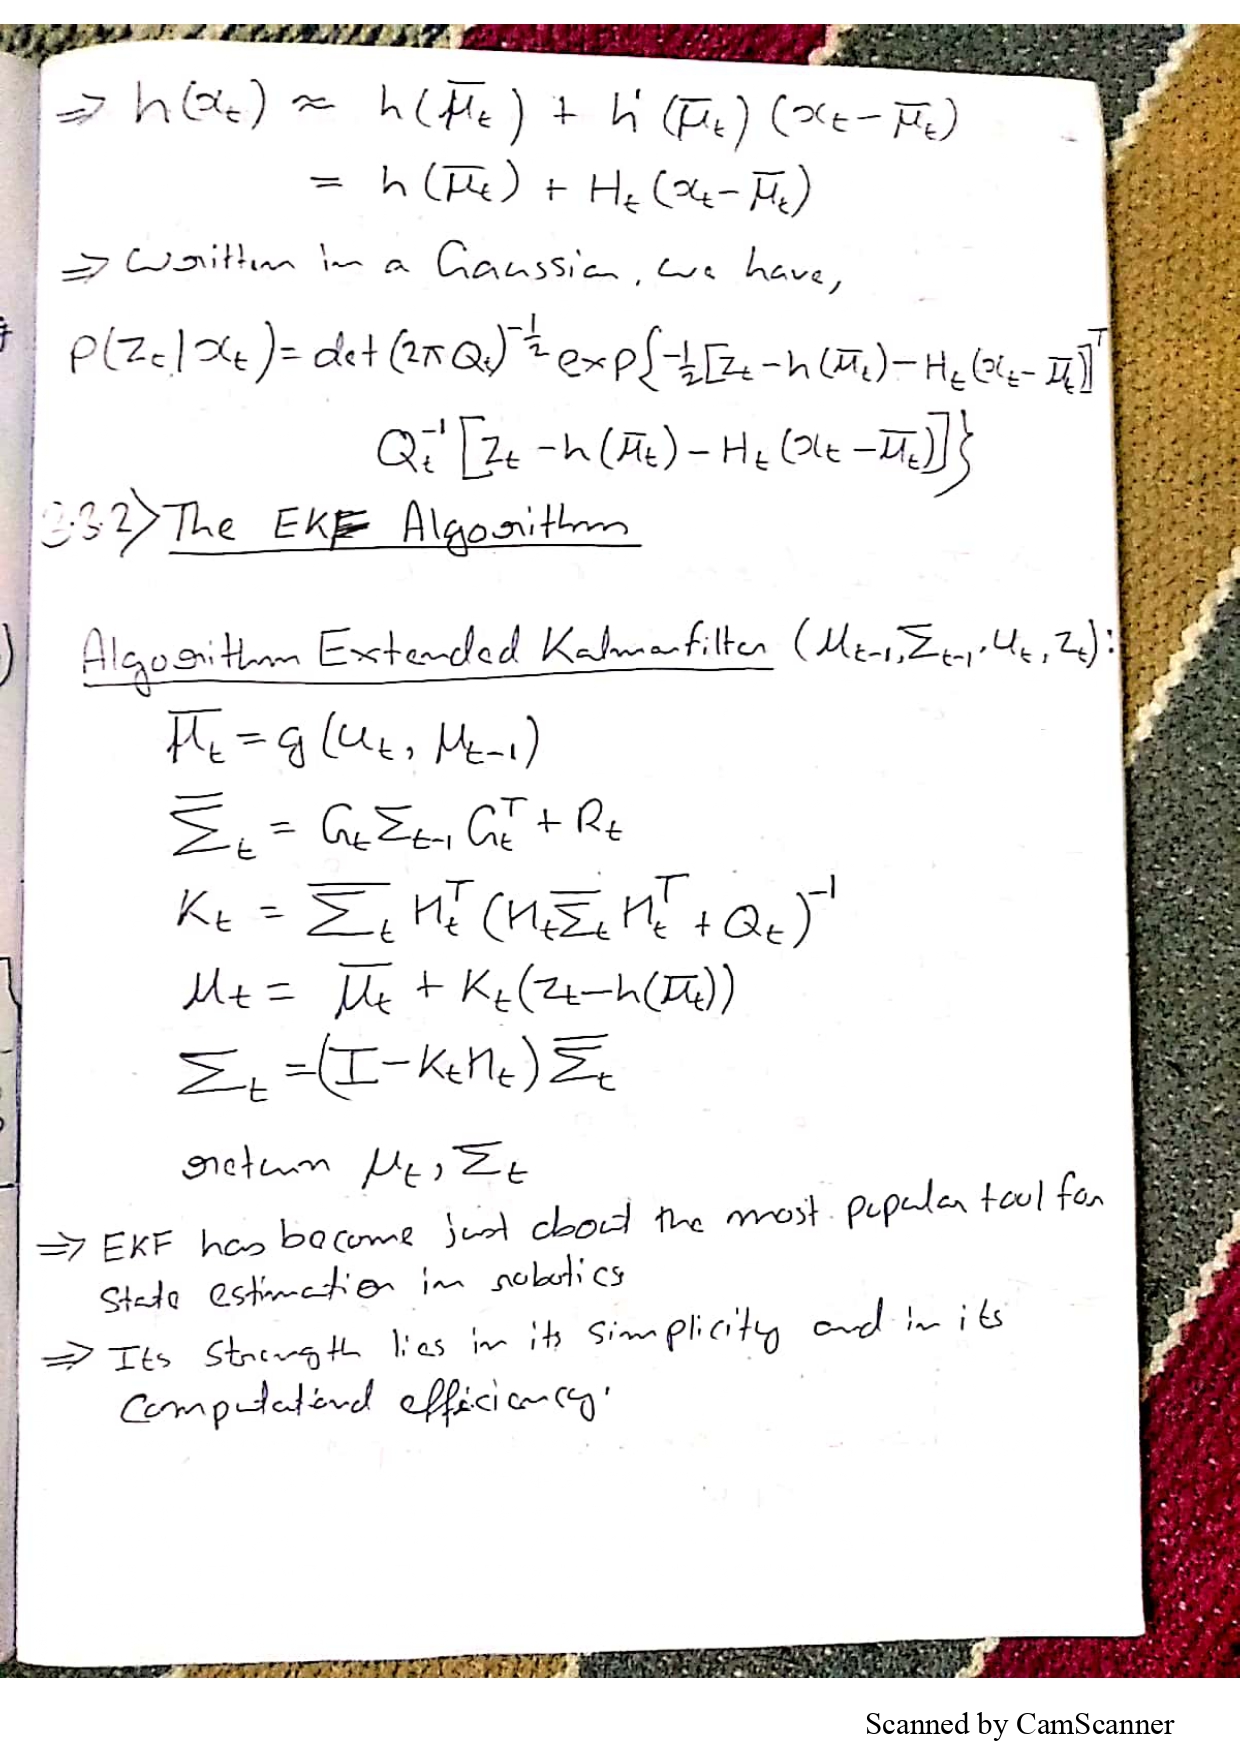 ⇒ h(x_t) ≈ h(μ̄_t) + h'(μ̄_t) (x_t − μ̄_t)
= h(μ̄_t) + H_t (x_t − μ̄_t)
⇒ Written in a Gaussian, we have,
p(z_t | x_t) = det(2πQ_t)^{-1/2} exp{−1/2 [z_t − h(μ̄_t) − H_t (x_t − μ̄_t)]^T
Q_t^{-1} [z_t − h(μ̄_t) − H_t (x_t − μ̄_t)]}
3.3.2> The EKF Algorithm
Algorithm Extended Kalmanfilter (μ_{t-1}, Σ_{t-1}, u_t, z_t):
μ̄_t = g(u_t, μ_{t-1})
Σ̄_t = G_t Σ_{t-1} G_t^T + R_t
K_t = Σ̄_t H_t^T (H_t Σ̄_t H_t^T + Q_t)^{-1}
μ_t = μ̄_t + K_t (z_t − h(μ̄_t))
Σ_t = (I − K_t H_t) Σ̄_t
return μ_t, Σ_t
⇒ EKF has become just about the most popular tool for
State estimation in robotics
⇒ Its strength lies in its simplicity and in its
Computational efficiency.
Scanned by CamScanner